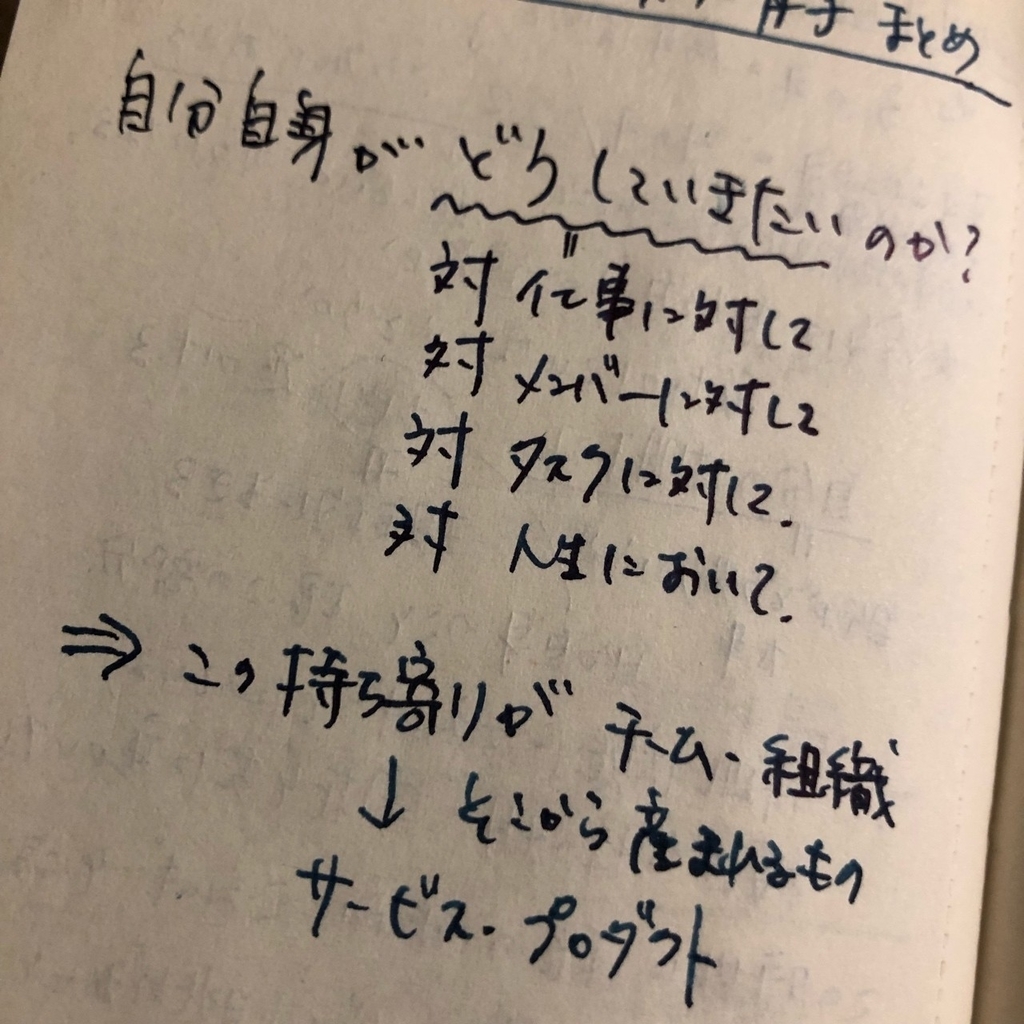 まとめ
自分自身がどうしていきたいのか?
〃
対 仕事に対して
対 メンバーに対して
対 タスクに対して.
対 人生において.
⇒ この持ち寄りがチーム・組織
↓ そこから産まれるもの
サービス・プロダクト